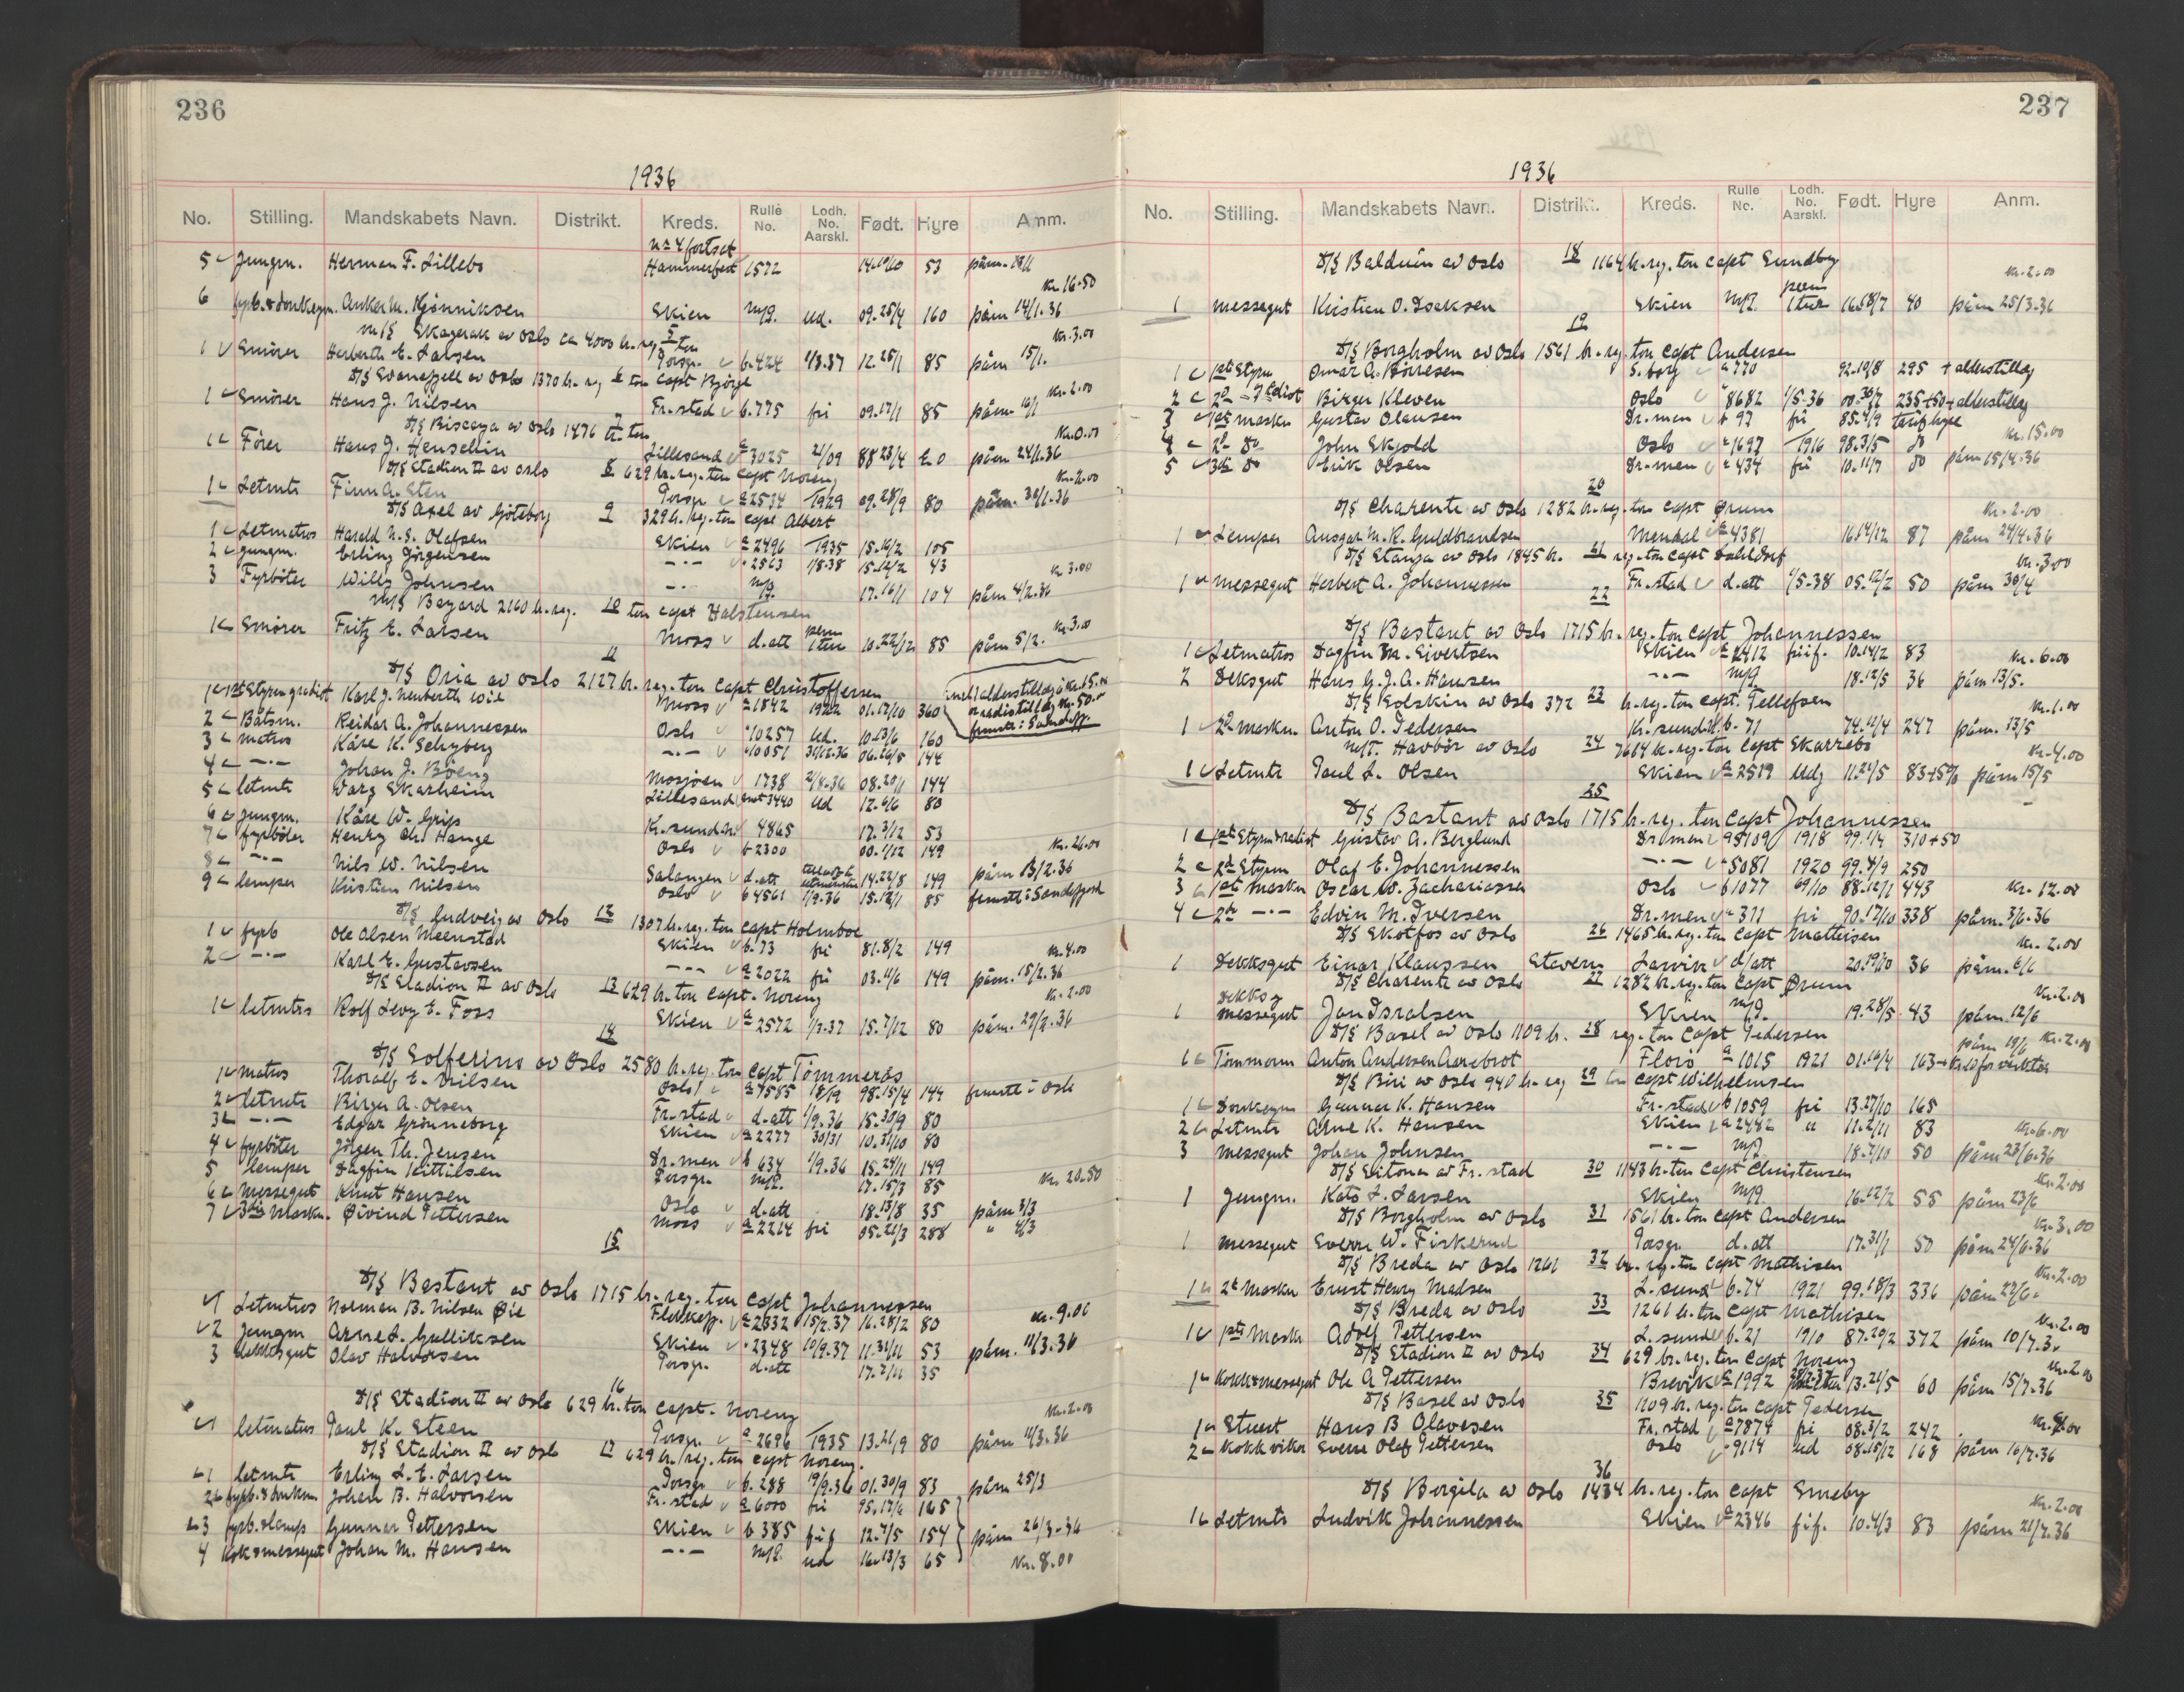 236
1936
No. Stilling. Mandskabets Navn. Distrikt. Kreds. Rulle No. Lodh. No. Aarskl. Født. Hyre Anm.
no 4 fortsat
5 Jungm. Herman F. Lillebo Hammerfest 1572 14.10/10 53 påm.
Kr. 16.50
6 fyrb. & donkeym. Anker M. Kjønniksen Skien m/p. Ud. 09.25/4 160 påm 14/1.36
5
M/S Skagerak av Oslo ca 4000 br. reg ton Kr. 3.00
1 Smörer Herberth E. Larsen Porsgr. b. 424 1/3.37 12.25/1 85 påm 15/1.
6
D/S Svanefjell av Oslo 1370 br. reg ton Capt Bjørge Kr. 2.00
1 Smörer Hans J. Nilsen Fr.stad b. 775 fri 09.17/1 85 påm 16/1
7
D/S Biscaya av Oslo 1476 br. ton Kr. 0.00
1 Förer Hans J. Henschien Lillesand a 3025 21/09 88 23/4 påm 24/1.36
8
D/S Stadion II av Oslo 629 br. reg. ton Capt Noreng Kr. 2.00
1 Letmts Finn A. Sten Porsgr a 2534 1929 09.28/9 80 påm. 30/1.36
9
D/S Axel av Göteborg 329 br. reg. ton Capt Albert
1 Letmatros Harald N. S. Olafsen Skien a 2496 1935 15.16/2 105
2 jungm. Erling Jörgensen -"- 2563 1/8.38 15.12/2 43 Kr 3.00
3 Fyrböter Willy Johnsen -"- m/p. 17.16/1 104 påm 4/2.36
10
M/S Bayard 2160 br. reg. ton capt Halstensen Kr. 3.00
1 Smörer Fritz E. Larsen Moss d. att 10.22/12 85 påm 5/2.
11
D/S Oria av Oslo 2127 br. reg. ton Capt Christoffersen
1 1st Styrm gnist Karl J. Neuberth Wie Moss a 1842 1922 01.17/10 360
2 Båtsm. Reidar A. Johannessen Oslo 10257 Ud. 10.13/6 160
3 matros Kåre K. Schyberg -"- 10051 30/12.36 06.26/5 144
4 -"- Johan J. Böeng Mosjøen 1738 2/4.36 08.20/1 144
5 letmts Warg Skarheim Lillesand 3440 Ud 12.6/6 80
6 Jungm. Kåre W. Grip Kr.sund N. 4865 17.3/12 53
7 fyrböter Henry Chr. Hauge Oslo b 2300 00.1/12 149 Kr. 26.00
8 -"- Nils W. Nilsen Salangen d. att 14.22/8 149 påm 13/2.36
9 lemper Kristian Nilsen Oslo b 4561 1/9.36 15.12/1 85 frmstl i Sandefjord
12
D/S Gudveig av Oslo 1307 br. reg. ton Capt Holmboe
1 fyrb Ole Olsen Meenstad Skien b. 73 fri 81.8/2 149 Kr. 4.00
2 -"- Karl E. Gustavsen -"- a 2022 fri 03.11/6 149 påm. 15/2.36
13
D/S Stadion II av Oslo 629 br. ton Capt. Noreng Kr. 2.00
1 letmtrs Rolf Levy E. Foss Skien a 2572 1/3.37 15.7/12 80 påm. 29/2.36
14
D/S Solferino av Oslo 2580 br. reg. ton Capt Tömmerås
1 matros Thoralf E. Nilsen Oslo a 7585 18/19 98.15/4 144 frmstl i Oslo
2 letmts Birger A. Olsen Fr.stad d. att 1/9.36 15.30/9 80
3 -"- Edgar Grönneberg Skien a 2277 30/31 10.31/10 80
4 fyrböter Jörgen Th. Jensen Dr.men b 634 1/9.36 15.24/11 149
5 lemper Dagfin Kittilsen Porsgr. m/p. 17.15/3 85 Kr. 20.50
6 Messegut Knut Hansen Oslo d. att 18.13/8 35 påm 3/3
7 3die Maskn. Øivind Pettersen Moss a 2214 fri 05.21/3 288 " 4/3
15
D/S Bastant av Oslo 1715 br. reg. ton Capt Johannessen
1 Letmtros Norman B. Nilsen Øie a 2332 15/2.37 16.28/2 80 Kr. 9.00
2 Jungm Arne L. Gulliksen Skien 2348 10/9.37 11.31/11 53 påm. 11/3.36
3 dekksgut Olav Halvorsen Porsgr. d. att 17.2/11 35
16
D/S Stadion II av Oslo 629 br. ton Capt. Noreng Kr. 2.00
1 letmatros Paul K. Steen Porsgr. a 2696 1935 13.21/9 80 påm 11/3.36
17
D/S Stadion II av Oslo 629 br. reg. ton Capt Noreng.
1 letmts Erling L. E. Larsen Porsgr b. 288 19/9.36 01.30/9 83 påm 25/3
2 fyrb. & donkm Johan B. Halvorsen Fr.stad a 6000 fri 95.17/2 165
3 fyrb. & lemp Gunnar Pettersen Skien b 385 fif 12.7/5 154 påm 26/3-36
4 Kok & messegut Johan M. Hansen -"- m/p. ud 16.13/3 65 Kr. 8.00
237
1936
No. Stilling. Mandskabets Navn. Distrikt. Kreds. Rulle No. Lodh. No. Aarskl. Født. Hyre Anm.
18
D/S Balduin av Oslo 1164 br. reg. ton Capt Sundby Kr. 2.00
1 messegut Kristian O. Isaksen Skien m/p. 16.18/7 40 påm 25/3.36
19
D/S Borgholm av Oslo 1561 br. reg. ton Capt Andersen
1 1ste Styrm Omar A. Börresen S.borg a 770 92.19/8 295 + alderstillæg
2 2d Birger Kleven Oslo 8682 1/5.36 00.30/7 235+50+alderstillæg
3 1ste maskn Gustav Olausen Dr.men b 97 fri 85.4/9 tarifhyre
4 2d do John Skjold Oslo a 1697 1916 98.3/5 do Kr. 15.00
5 3die do Erik Olsen Dr.men a 434 fri 10.11/7 do påm 15/4.36
20
D/S Charente av Oslo 1282 br. reg. ton Capt Ørum Kr. 2.00
1 Lemper Ansgar M. R. Guldbrandsen Mendal a 4381 16.14/12 87 påm 24/4.36
21
D/S Stanja av Oslo 1845 br. reg. ton Capt Dahldorf Kr. 3.00
1 messegut Herbert A. Johannessen Fr.stad d. att 1/5.38 05.12/2 50 påm 30/4
22
D/S Bastant av Oslo 1715 br. reg. ton Capt Johannessen
1 Letmatros Dagfin M. Sivertsen Skien a 2412 fri if. 10.14/2 83 Kr. 6.00
2 Deksgut Hans G. J. A. Hansen -"- m/p 18.12/5 36 påm 13/5.
23
D/S Solskin av Oslo 372 br. reg. ton capt. Tellefsen Kr. 1.00
1 2d Maskn. Anton O. Pedersen Kr.sund N. b. 71 74.12/4 247 påm. 13/5
24
M/T. Havbör av Oslo 7614 br. reg. ton Capt Skarrebo Kr. 4.00
1 Letmts Paul L. Olsen Skien a 2519 Udg 11.21/5 83+5% påm 15/5
25
D/S Bastant av Oslo 1715 br. reg. ton Capt Johannessen
1 1ste Styrm & radist Gustav A. Berglund Dr.men 1918 99.1/4 310+50
2 2d Styrm Olaf E. Johannessen -"- 5081 1920 99.4/9 250
3 1ste Maskn Oscar W. Zachariassen Oslo b 1077 09/10 88.12/1 443 Kr. 12.00
4 2de -"- Edvin M. Iversen Dr.men 311 fri 90.17/10 338 påm. 3/6.36
26
D/S Skotfos av Oslo 1465 br. reg. ton Capt Mathisen Kr. 2.00
1 Dekksgut Einar Klaussen Stavern Larvik d/att 20.19/10 36 påm. 6/6
27
D/S Charente av Oslo 1282 br. ton Capt Ørum Kr. 2.00
1 Dekks & messegut Jan Isralsen Skien m/p. 19.28/5 43 påm 12/6
28
D/S Basel av Oslo 1109 br. reg. ton Capt Pedersen påm 19/6 Kr. 2.00
1 Tömmerm Anton Andersen Aarebrot Florö a 1015 1921 01.16/4 163
29
D/S Biri av Oslo 940 br. reg ton Capt Wilhelmsen
1 Donkeym Gunnar K. Hansen Fr.stad b 1059 fri 13.27/10 165
2 Letmts Arne K. Hansen Skien a 2482 " 11.2/11 83 Kr. 6.00
3 messegut Johan Johnsen -"- m/p 18.7/10 50 påm 23/6.36
30
D/S Sitona av Fr.stad 1143 br. ton Capt Christensen Kr. 2.00
1 Jungm. Kato L. Larsen Skien m/p 16.12/2 55 påm 23/6
31
D/S Borgholm av Oslo 1561 br. ton Capt Andersen Kr. 3.00
1 messegut Sverre W. Fiskerud Porsgr d. att 17.31/1 50 påm 24/6.36
32
D/S Breda av Oslo 1261 br. reg. ton Capt Mathisen Kr. 2.00
1 2d Maskn Ernst Henry Madsen L.sund b. 74 1921 99.18/3 336 påm 29/6.
33
D/S Breda av Oslo 1261 br. ton Capt Mathisen Kr. 2.00
1 1ste Maskn Adolf Pettersen L.sund b. 21 1910 87.20/2 372 påm 10/7.3.
34
D/S Stadion II av Oslo 629 br. reg. ton Capt Noreng Kr. 2.00
1 Kokk & messegut Ole A Pettersen Brevik a 1992 13.21/5 60 påm 15/7.36
35
D/S Basel av Oslo 1109 br. reg. ton Capt Pedersen
1 Stuert Hans B Olavesen Fr.stad a 7874 fri 08.3/2 242
2 Kokk vikar Sverre Olaf Pettersen Oslo 9114 ud 08.15/12 168 påm 16/7.36
36
D/S Borgila av Oslo 1434 br. reg. ton Capt Smeby Kr. 2.00
1 Letmts Ludvik Johannessen Skien a 2346 fif. 10.4/3 83 påm 21/7.36